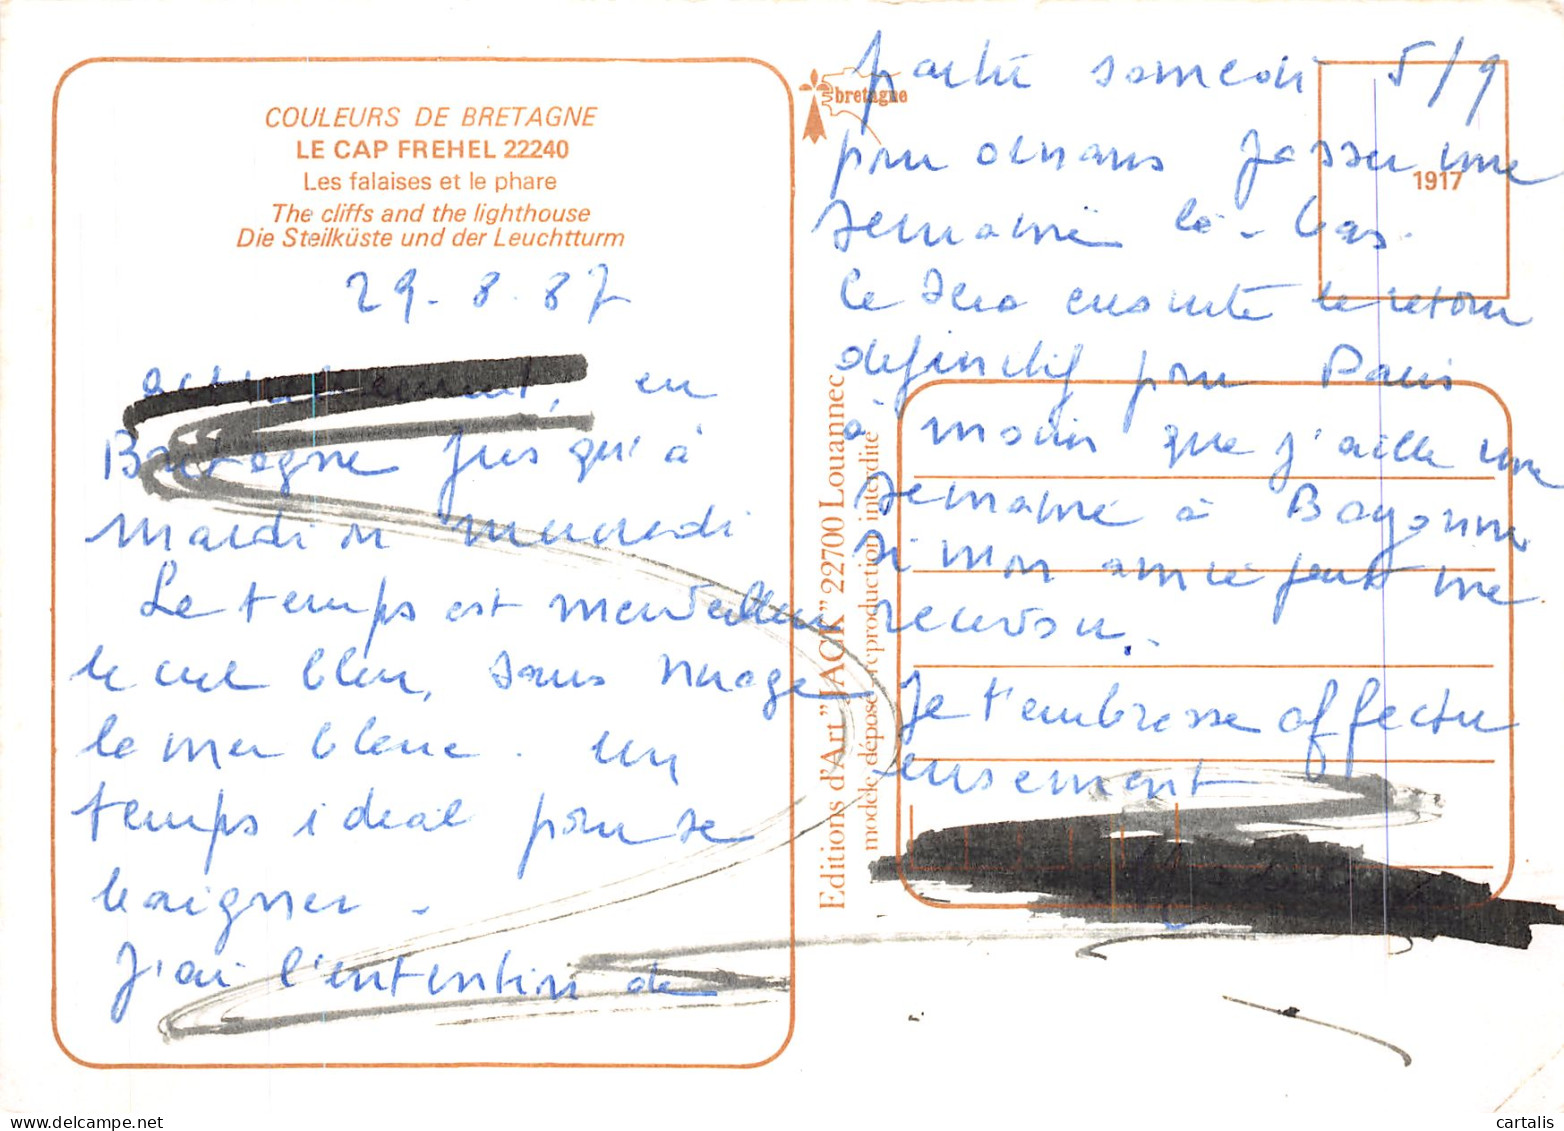 COULEURS DE BRETAGNE
LE CAP FREHEL 22240
Les falaises et le phare
The cliffs and the lighthouse
Die Steilküste und der Leuchtturm
29-8-87
actuellement, en
Bretagne jusqu'à
mardi ou mercredi
Le temps est merveilleux
le ciel bleu, sans nuage
la mer bleue. un
temps idéal pour se
baigner.
J'ai l'intention de
Editions d'Art "JACK" 22700 Louannec
modèle déposé reproduction interdite
bretagne
1917
partir samedi 5/9
pour Ornans passer une
semaine là-bas.
Ce sera ensuite le retour
définitif pour Paris
à moins que j'aille une
semaine à Bayonne
si mon amie peut me
recevoir.
Je t'embrasse affectu
eusement
cartalis